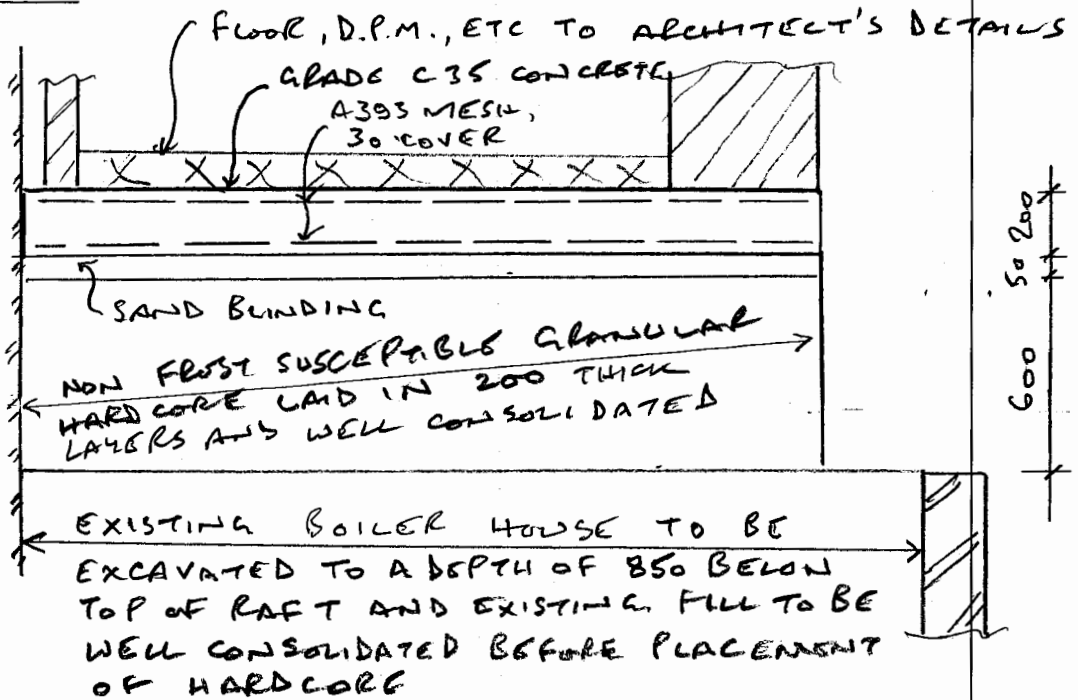 FLOOR, D.P.M., ETC TO ARCHITECT'S DETAILS
GRADE C35 CONCRETE
A393 MESH,
30 COVER
SAND BLINDING
NON FROST SUSCEPTIBLE GRANULAR
HARDCORE LAID IN 200 THICK
LAYERS AND WELL CONSOLIDATED
200
50
600
EXISTING BOILER HOUSE TO BE
EXCAVATED TO A DEPTH OF 850 BELOW
TOP OF RAFT AND EXISTING FILL TO BE
WELL CONSOLIDATED BEFORE PLACEMENT
OF HARDCORE